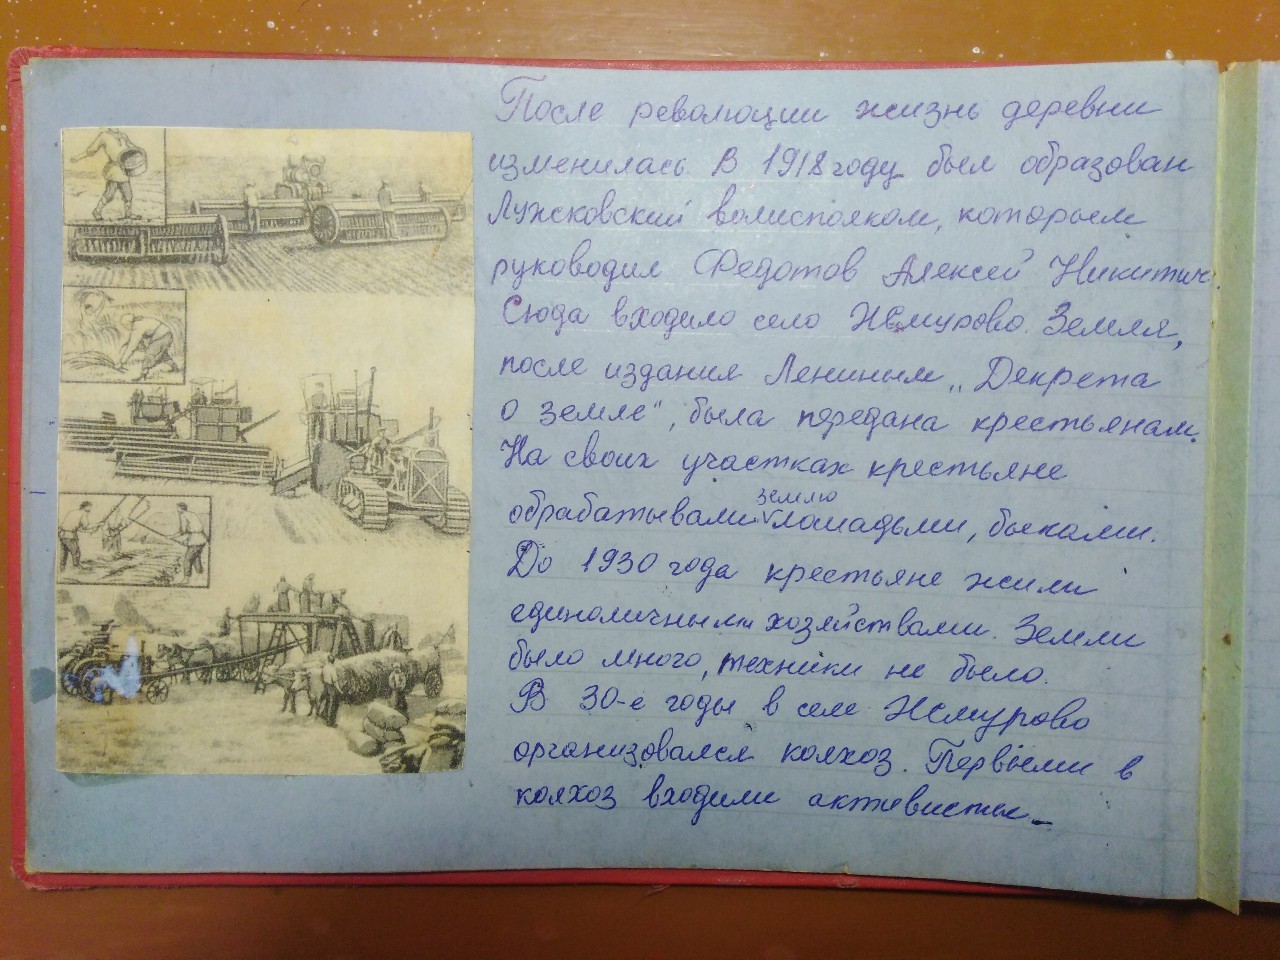 После революции жизнь деревни
изменилась. В 1918 году был образован
Лужковский волисполком, которым
руководил Федотов Алексей Никитич.
Сюда входило село Жмурово. Земля,
после издания Лениным „Декрета
о земле", была передана крестьянам.
На своих участках крестьяне
обрабатывали землю лошадьми, быками.
До 1930 года крестьяне жили
единоличными хозяйствами. Земли
было много, техники не было.
В 30-е годы в селе Жмурово
организовался колхоз. Первыми в
колхоз входили активисты_